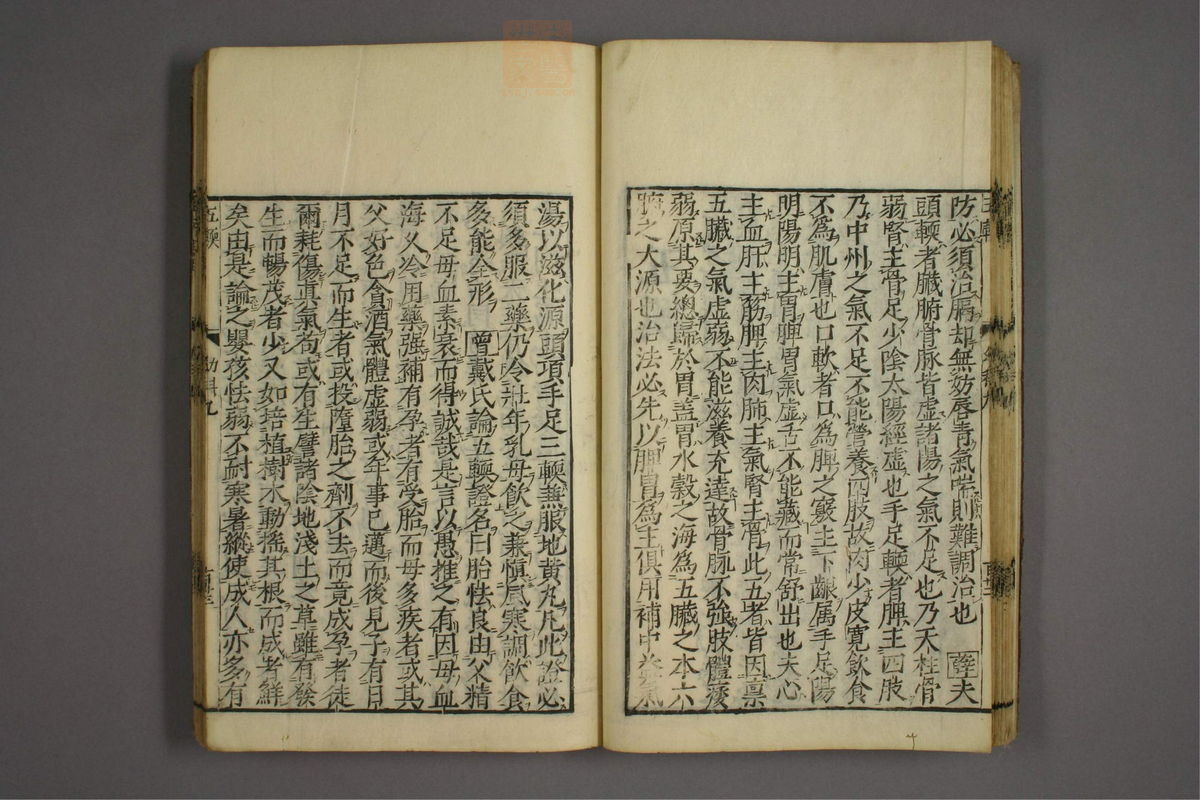 防必須治膈却無妨唇青氣喘則難調治也 薛夫
頭軟者臟腑骨脉皆虛諸陽之氣不足也乃天柱骨
弱腎主骨足少陰太陽經虛也手足軟者脾主四肢
乃中州之氣不足不能營養四肢故肉少皮寬飲食
不為肌膚也口軟者口為脾之竅主下齦属手足陽
明陽明主胃脾胃氣虛舌不能藏而常舒出也夫心
主血肝主筋脾主肉肺主氣腎主骨此五者皆因禀
五臟之氣虛弱不能滋養充達故骨脉不強肢體痿
弱原其要總歸於胃盖胃水穀之海為五臟之本六
腑之大源也治法必先以脾胃為主俱用補中益氣
湯以滋化源頭項手足三軟兼服地黃丸凡此證必
須多服二藥仍令壯年乳母飲之兼慎風寒調飲食
多能全形 曾戴氏論五軟證名曰胎怯良由父精
不足母血素衰而得誠哉是言以愚推之有因母血
海久冷用藥强補有孕者有受胎而母多疾者或其
父好色貪酒氣體虛弱或年事已邁而後見子有日
月不足而生者或投墮胎之劑不去而竟成孕者徒
爾耗傷真氣苟或有生譬諸陰地淺土之草雖有發
生而暢茂者少又如培植樹木動搖其根而成者鮮
矣由是論之嬰孩怯弱不耐寒暑縱使成人亦多有
五軟
幼科九